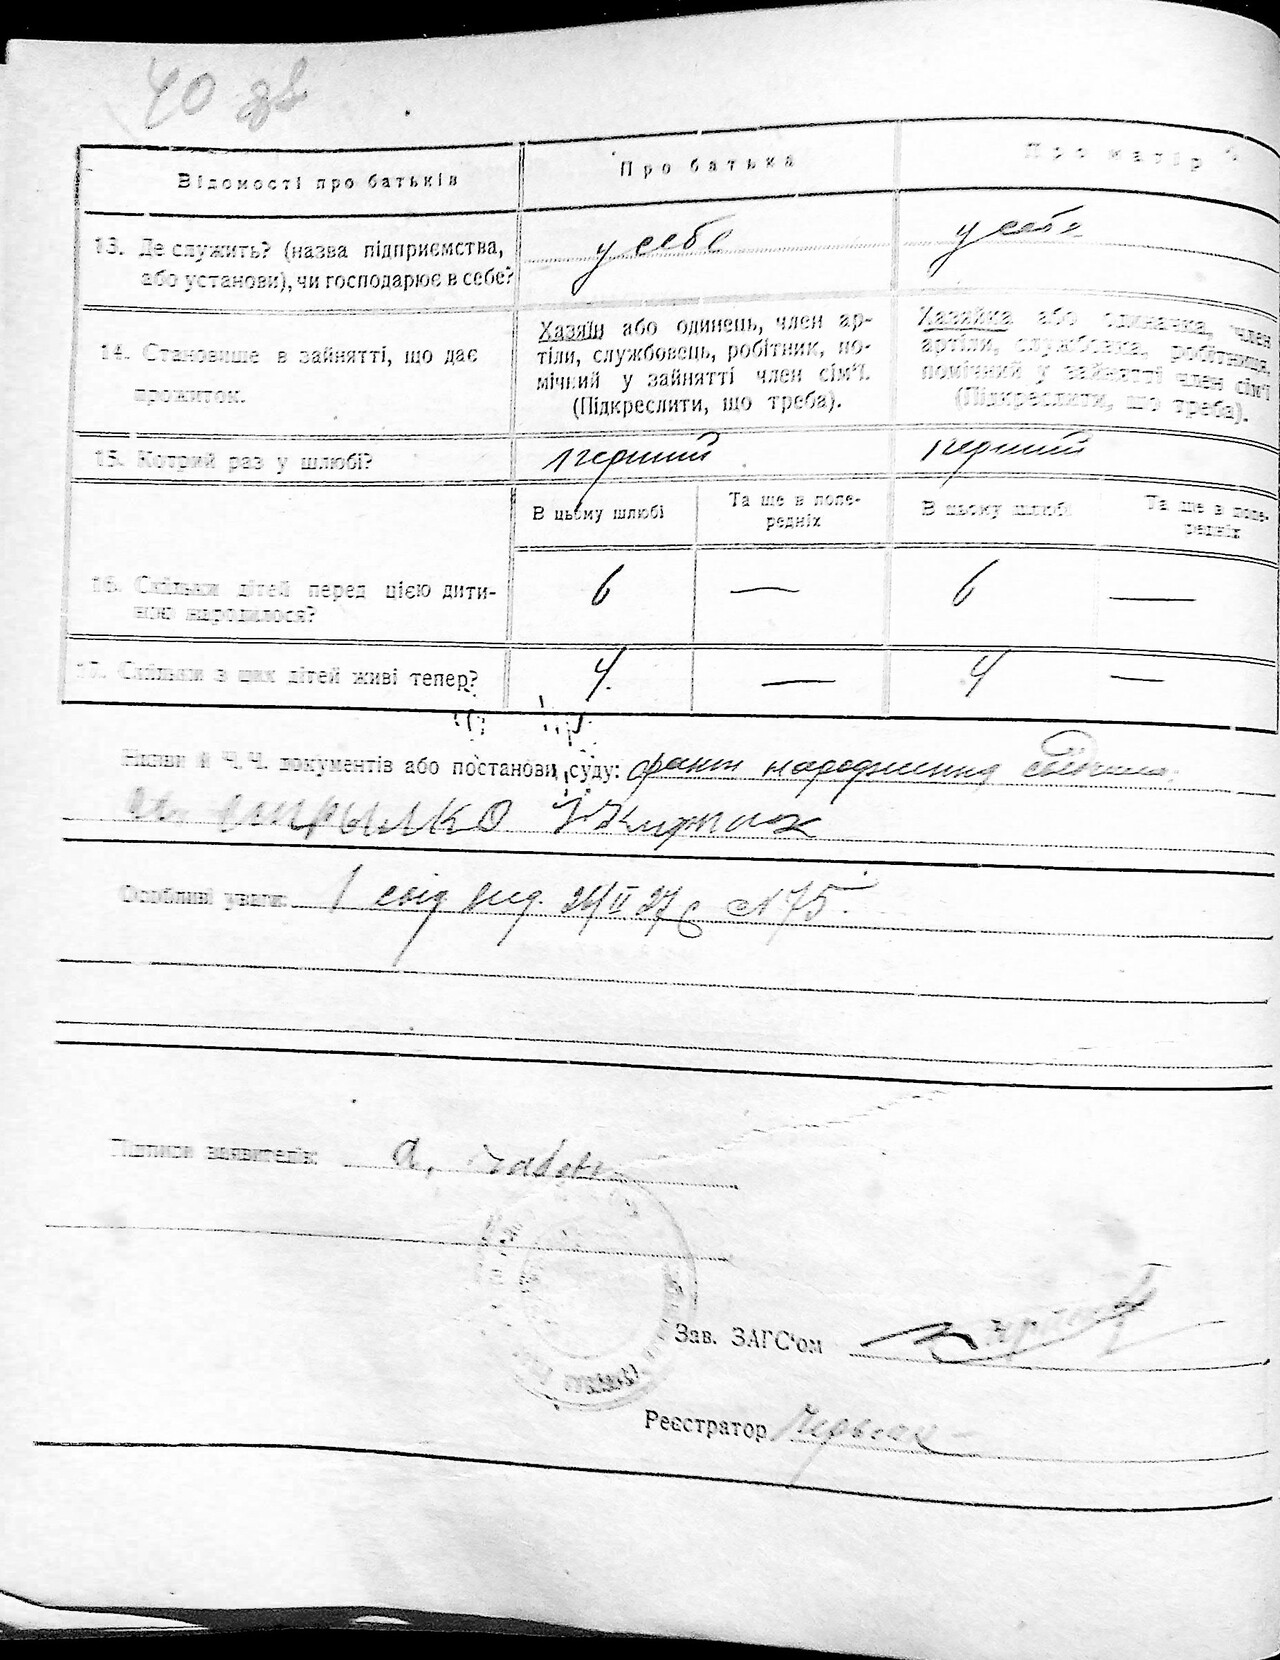 40 зв
Відомості про батьків
Про батька
Про матір
13. Де служить? (назва підприємства,
або установи), чи господарює в себе?
у себе
у себе
14. Становище в зайнятті, що дає
прожиток.
Хазяїн або одинець, член ар-
тіли, службовець, робітник, по-
мічний у зайнятті член сім'ї.
(Підкреслити, що треба).
Хазяйка або одиначка, член
артіли, службовка, робітниця,
помічний у зайнятті член сім'ї
(Підкреслити, що треба).
15. Котрий раз у шлюбі?
перший
перший
В цьому шлюбі
Та ще в попе-
редніх
В цьому шлюбі
Та ще в попе-
редніх
16. Скільки дітей перед цією дити-
ною народилося?
6 —
6 —
17. Скільки з цих дітей живі тепер?
4. —
4 —
Назви й Ч.Ч. документів або постанови суду: факт народження
Особливі уваги: 1 свід вид. 24/II 27 с №75.
Підписи заявителів: а,
Зав. ЗАГС'ом
Реєстратор